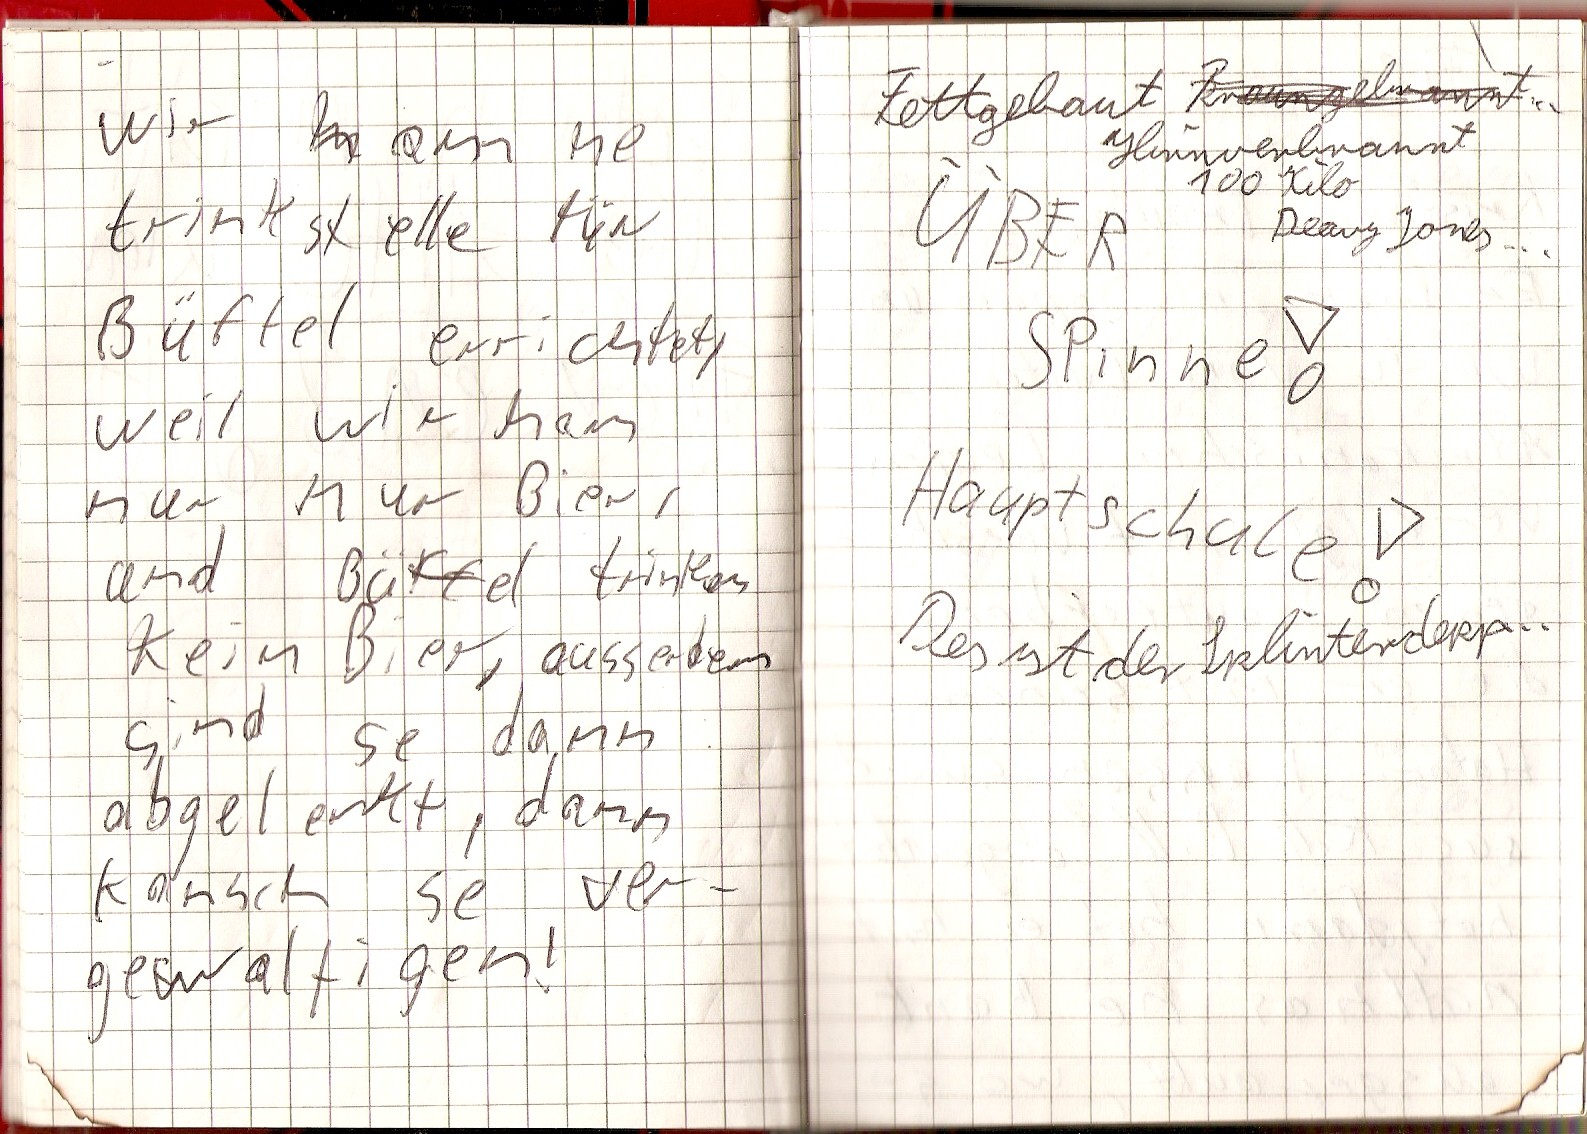 wir ham ne
trinkstelle für
Büffel errichtet,
weil wir ham
nur nur Bier,
und Büffel trinken
kein Bier, ausserdem
sind se dann
abgelenkt, dann
kansch se ver-
gewaltigen!
Fettgebaut Braungebrannt...
Hirnverbrannt
100 Kilo
ÜBER
Deavy Jones....
SPinne!
Hauptschule!
Des ist der Splinterdepp...